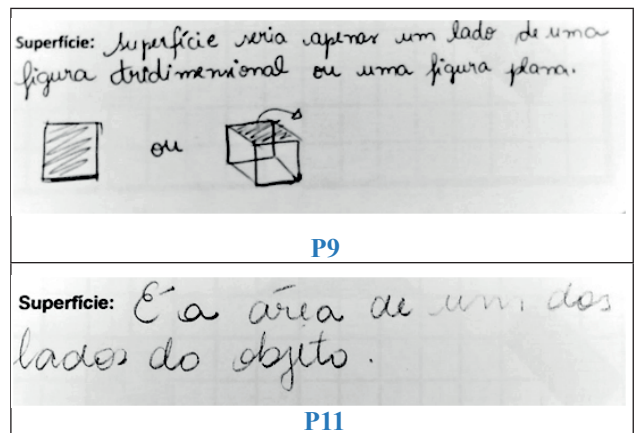 Superfície: Superfície seria apenas um lado de uma
figura tridimensional ou uma figura plana.
ou
P9
Superfície: É a área de um dos
lados do objeto.
P11